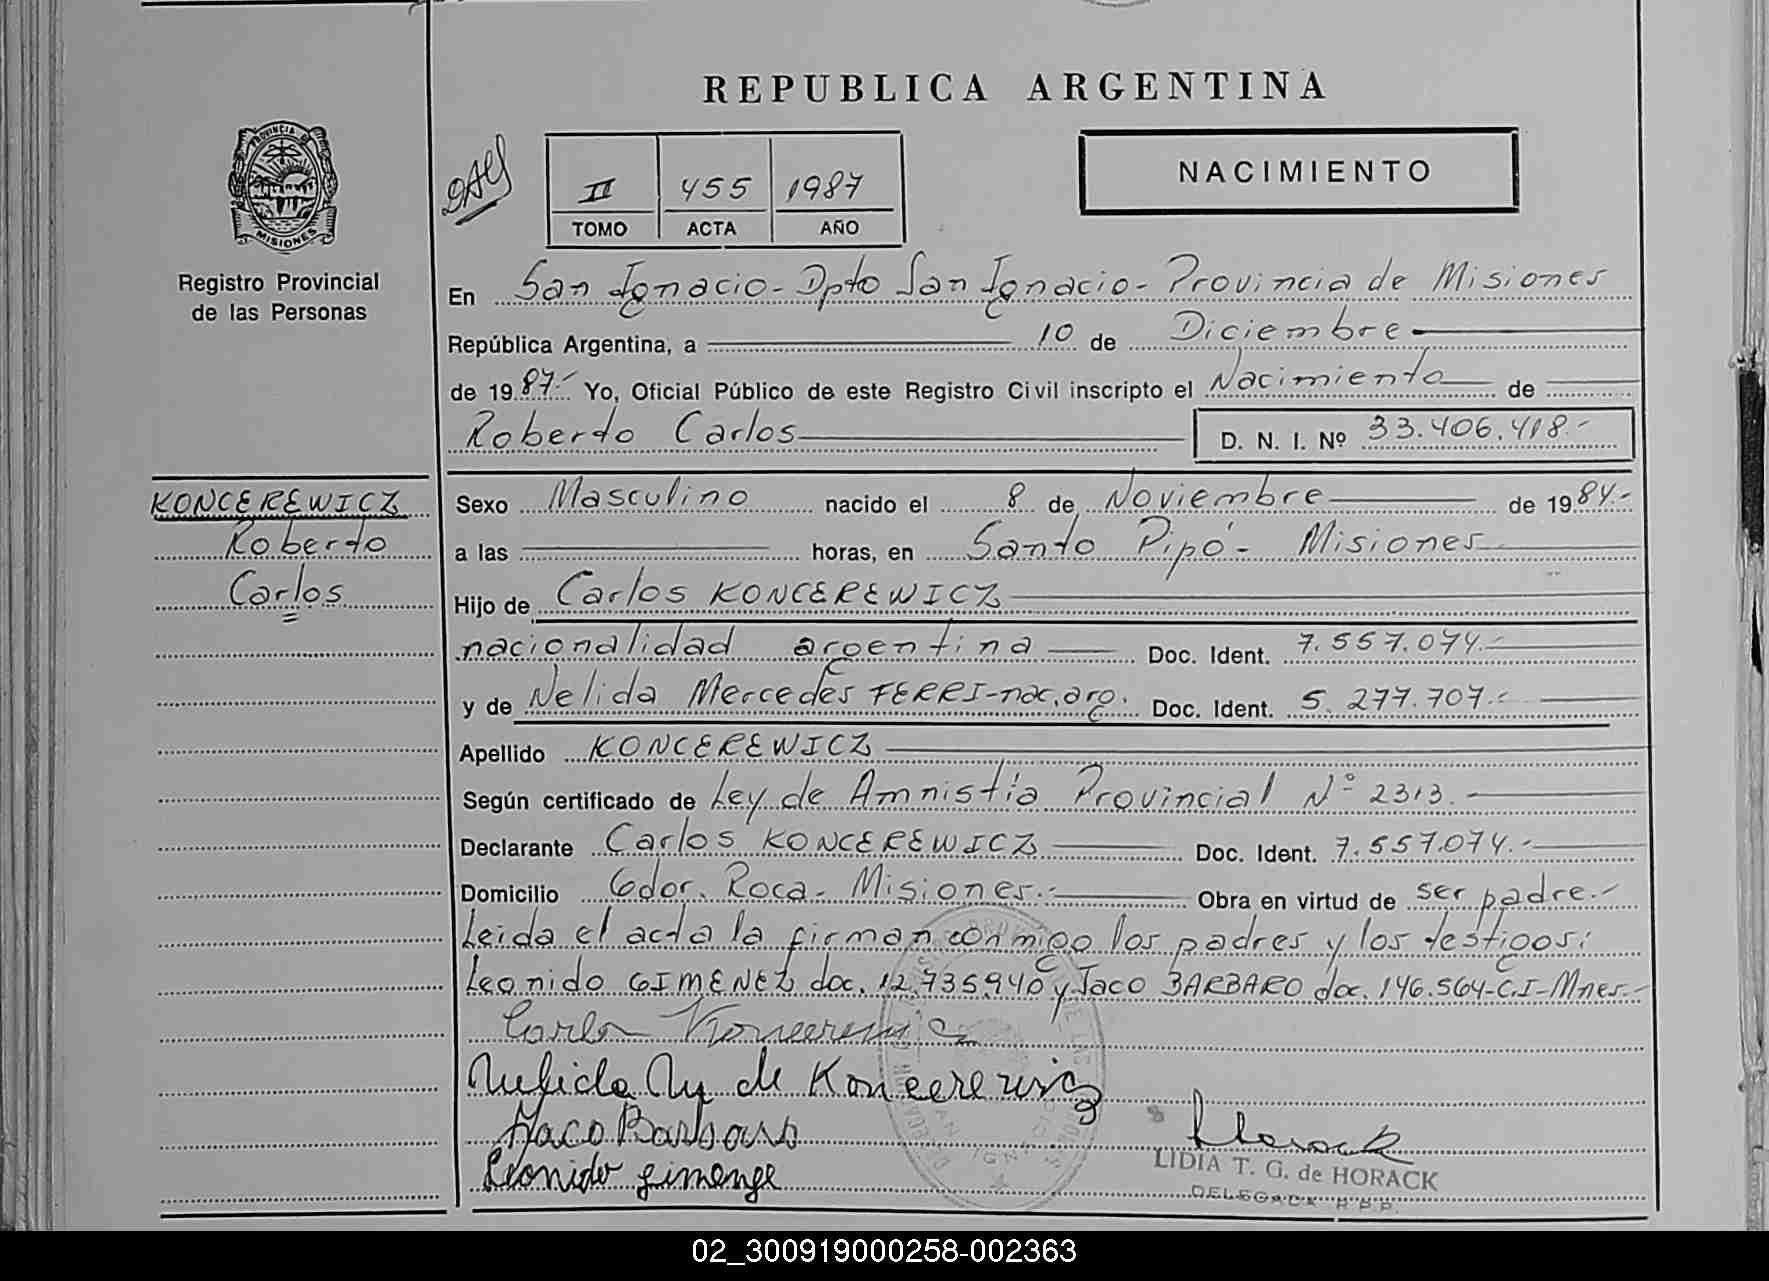 REPUBLICA ARGENTINA
PROVINCIA DE
MISIONES
Registro Provincial
de las Personas
II 455 1987
TOMO ACTA AÑO
NACIMIENTO
En San Ignacio - Dpto San Ignacio - Provincia de Misiones
República Argentina, a 10 de Diciembre
de 1987.- Yo, Oficial Público de este Registro Civil inscripto el Nacimiento de
Roberto Carlos D. N. I. Nº 33.406.418.-
KONCEREWICZ
Roberto
Carlos
Sexo Masculino nacido el 8 de Noviembre de 1984.-
a las horas, en Santo Pipó - Misiones
Hijo de Carlos KONCEREWICZ
nacionalidad argentina Doc. Ident. 7.557.074.-
y de Nelida Mercedes FERRI - nac. arg. Doc. Ident. 5.277.707.-
Apellido KONCEREWICZ
Según certificado de Ley de Amnistía Provincial N° 2313.-
Declarante Carlos KONCEREWICZ Doc. Ident. 7.557.074.-
Domicilio Gdor. Roca - Misiones.- Obra en virtud de ser padre.-
Leida el acta la firman conmigo los padres y los testigos:
Leonido GIMENEZ doc. 12.735.940 y Jaco BARBARO doc. 146.564-C.I-Mnes.-
Carlos Koncerewicz
de Koncerewicz
Jaco Barbaro
Leonido Gimenez
Horack
LIDIA T. G. de HORACK
DELEGADA R.P.P.
02_300919000258-002363